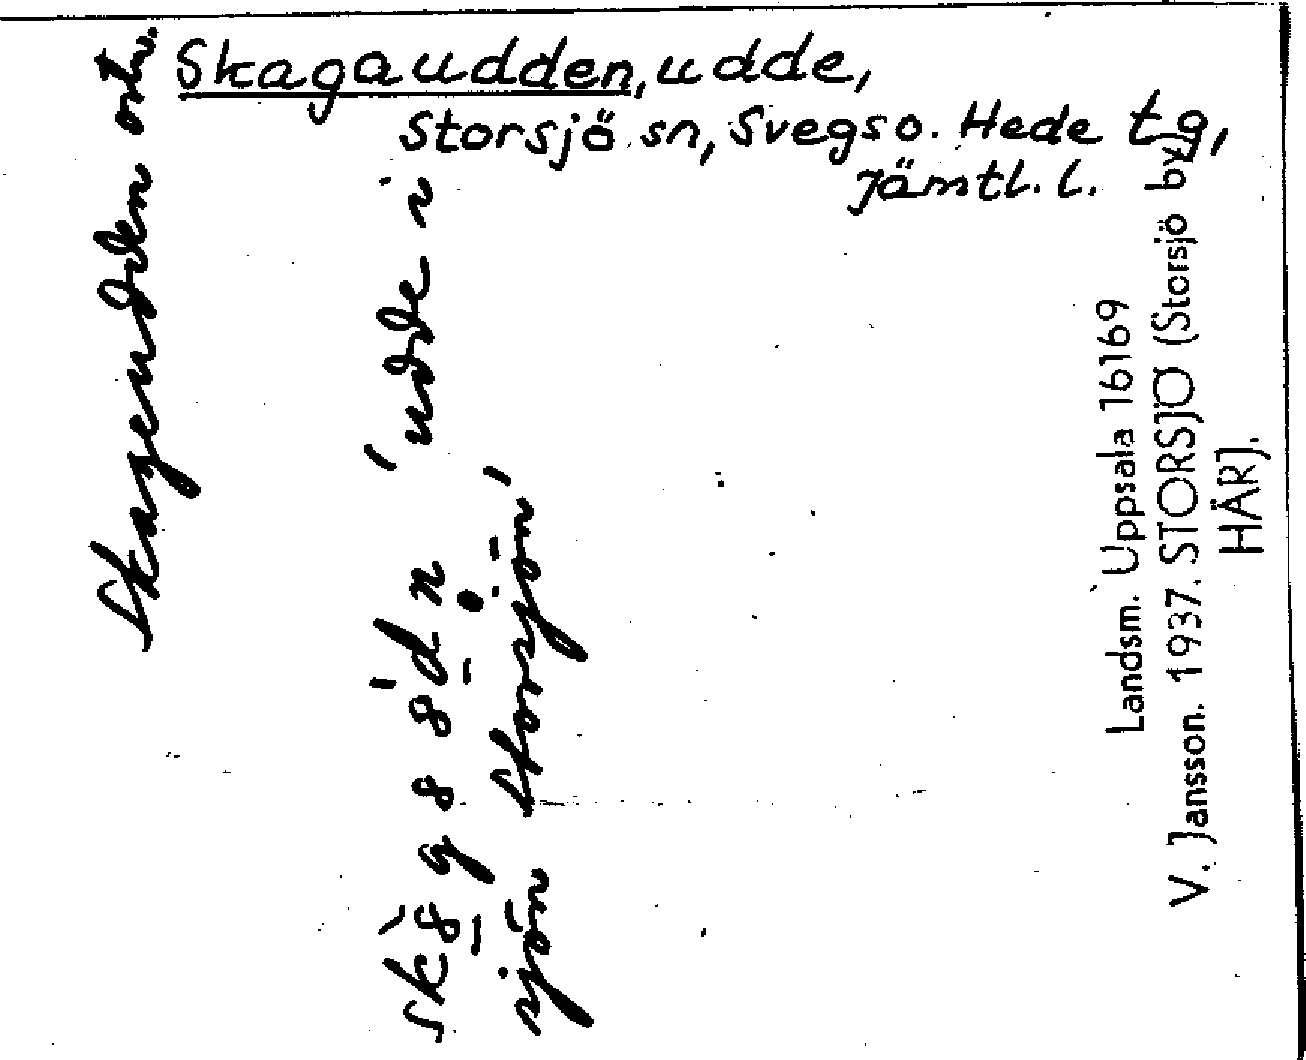 Skagaudden, udde,
Storsjö sn, Svegs o. Hede tg,
Jämtl. l.
Skagaudden ortn.
'udde i
sjön Storsjön'
Landsm. Uppsala 16169
V. Jansson. 1937. STORSJÖ (Storsjö by)
HÄRJ.